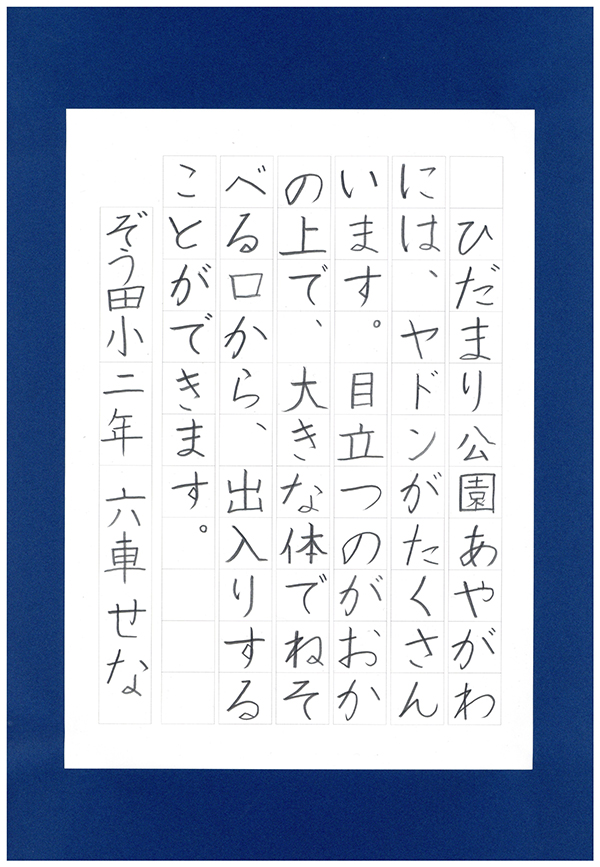 ひだまり公園あやがわ
には、ヤドンがたくさん
います。目立つのがおか
の上で、大きな体でねそ
べる口から、出入りする
ことができます。
ぞう田小二年 六車せな